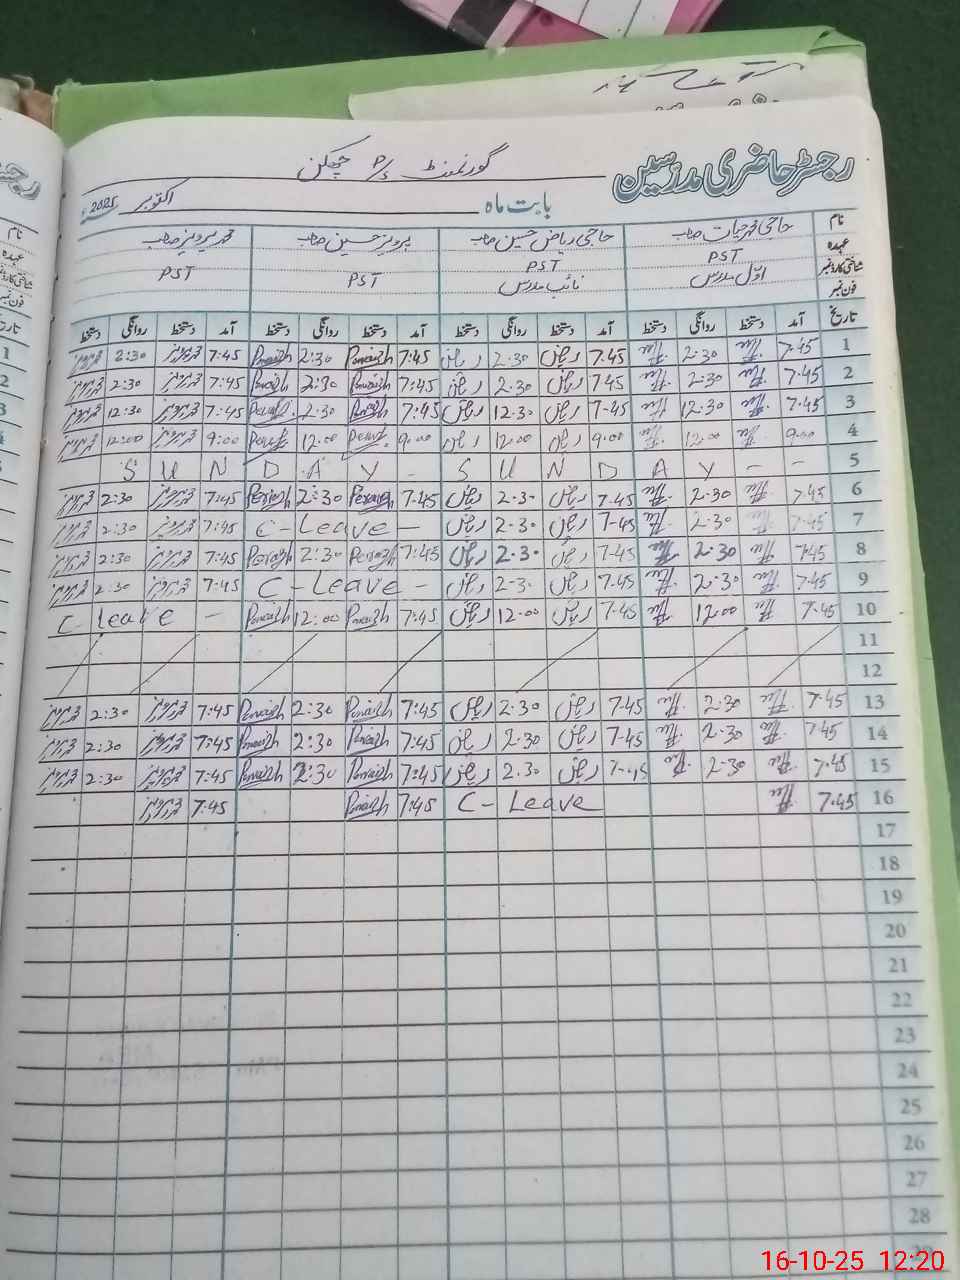 رجسٹر حاضری مدرسین
گورنمنٹ P/S چھکن
بابت ماہ اکتوبر 2025ء
نام حاجی محمد حیات صاحب حاجی ریاض حسین صاحب پرویز حسین صاحب محمد پرویز صاحب
عہدہ PST PST PST PST
شناختی کارڈ نمبر اوّل مدرس نائب مدرس
فون نمبر
تاریخ آمد دستخط روانگی دستخط آمد دستخط روانگی دستخط آمد دستخط روانگی دستخط آمد دستخط روانگی دستخط
1 7.45 2.30 7.45 ریاض 2.30 ریاض 7:45 Pervaizh 2:30 Pervaizh 7:45 2:30
2 7.45 2.30 7.45 ریاض 2.30 ریاض 7:45 Pervaizh 2:30 Pervaizh 7:45 2:30
3 7.45 12.30 7-45 ریاض 12.30 ریاض 7:45 Pervaizh 2.30 7:45 12:30
4 9.00 12.00 9.00 ریاض 12.00 ریاض 9.00 12.00 9:00 12:00
5 S U N D A Y - S U N D A Y - -
6 7.45 2.30 7.45 ریاض 2.30 ریاض 7:45 Pervaizh 2:30 Pervaizh 7:45 2:30
7 7.45 2.30 7-45 ریاض 2.30 ریاض C-Leave - 7:45 2:30
8 7.45 2.30 7-45 ریاض 2.30 ریاض 7:45 Pervaizh 2:30 Pervaizh 7:45 2:30
9 7.45 2.30 7.45 ریاض 2-30 ریاض C-Leave - 7:45 2:30
10 7.45 12.00 7.45 ریاض 12.00 ریاض 7:45 Pervaizh 12:00 Pervaizh C Leave -
11
12
13 7.45 2.30 7.45 ریاض 2.30 ریاض 7:45 Pervaizh 2:30 Pervaizh 7:45 2:30
14 7.45 2.30 7-45 ریاض 2.30 ریاض 7:45 Pervaizh 2:30 Pervaizh 7:45 2:30
15 7.45 2.30 7-45 ریاض 2.30 ریاض 7:45 Pervaizh 2:30 Pervaizh 7:45 2:30
16 7.45 C - Leave 7:45 Pervaizh 7:45
17
18
19
20
21
22
23
24
25
26
27
28
29
16-10-25 12:20